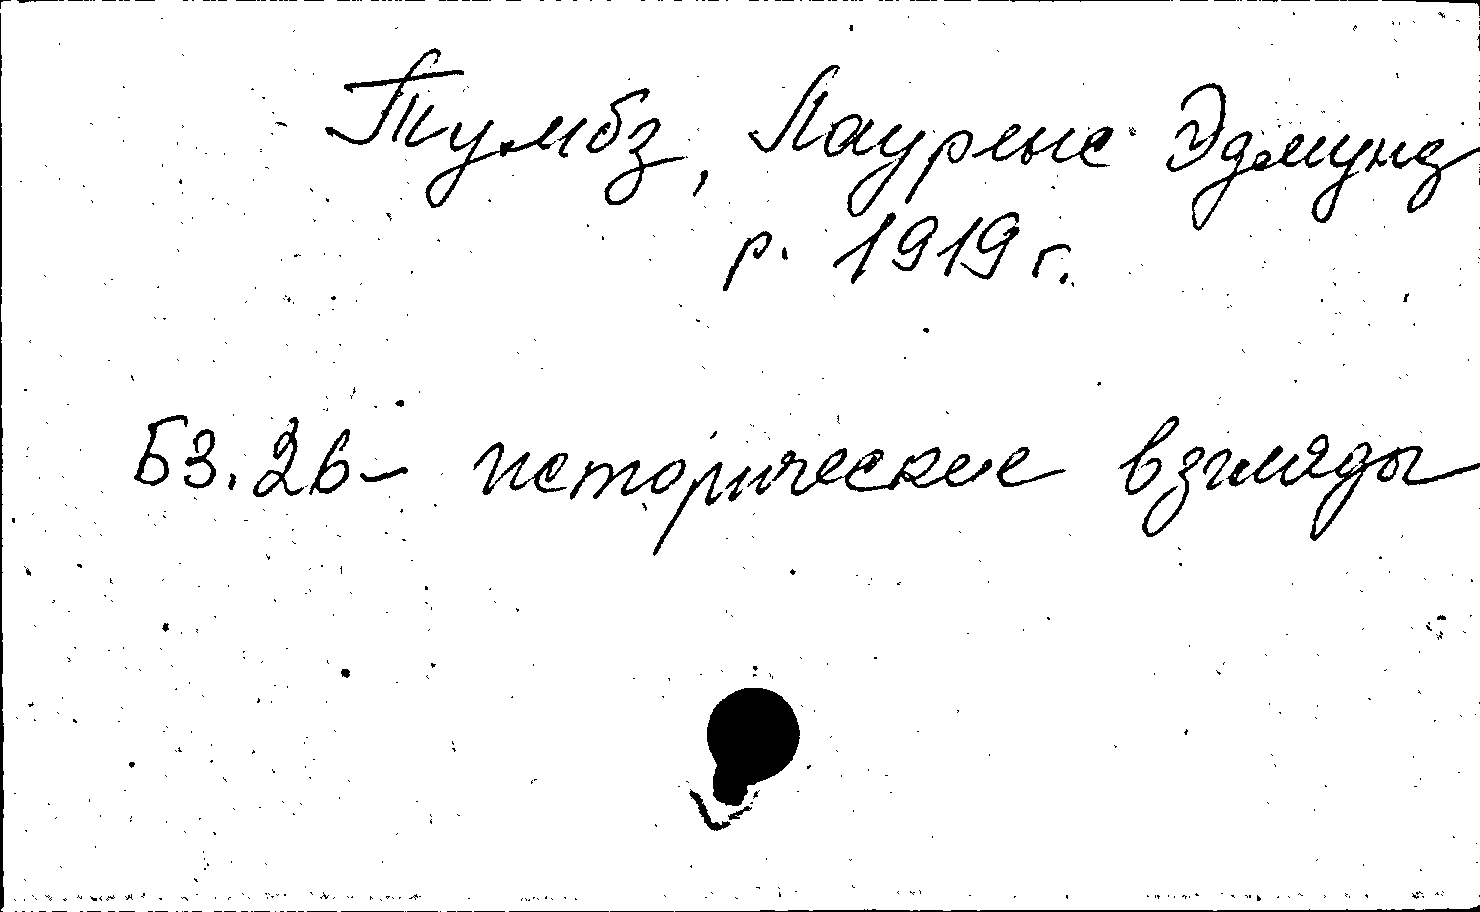 Тумбз, Лауренс Эдмунд
р. 1919 г.
Б3.2в- исторические взгляды